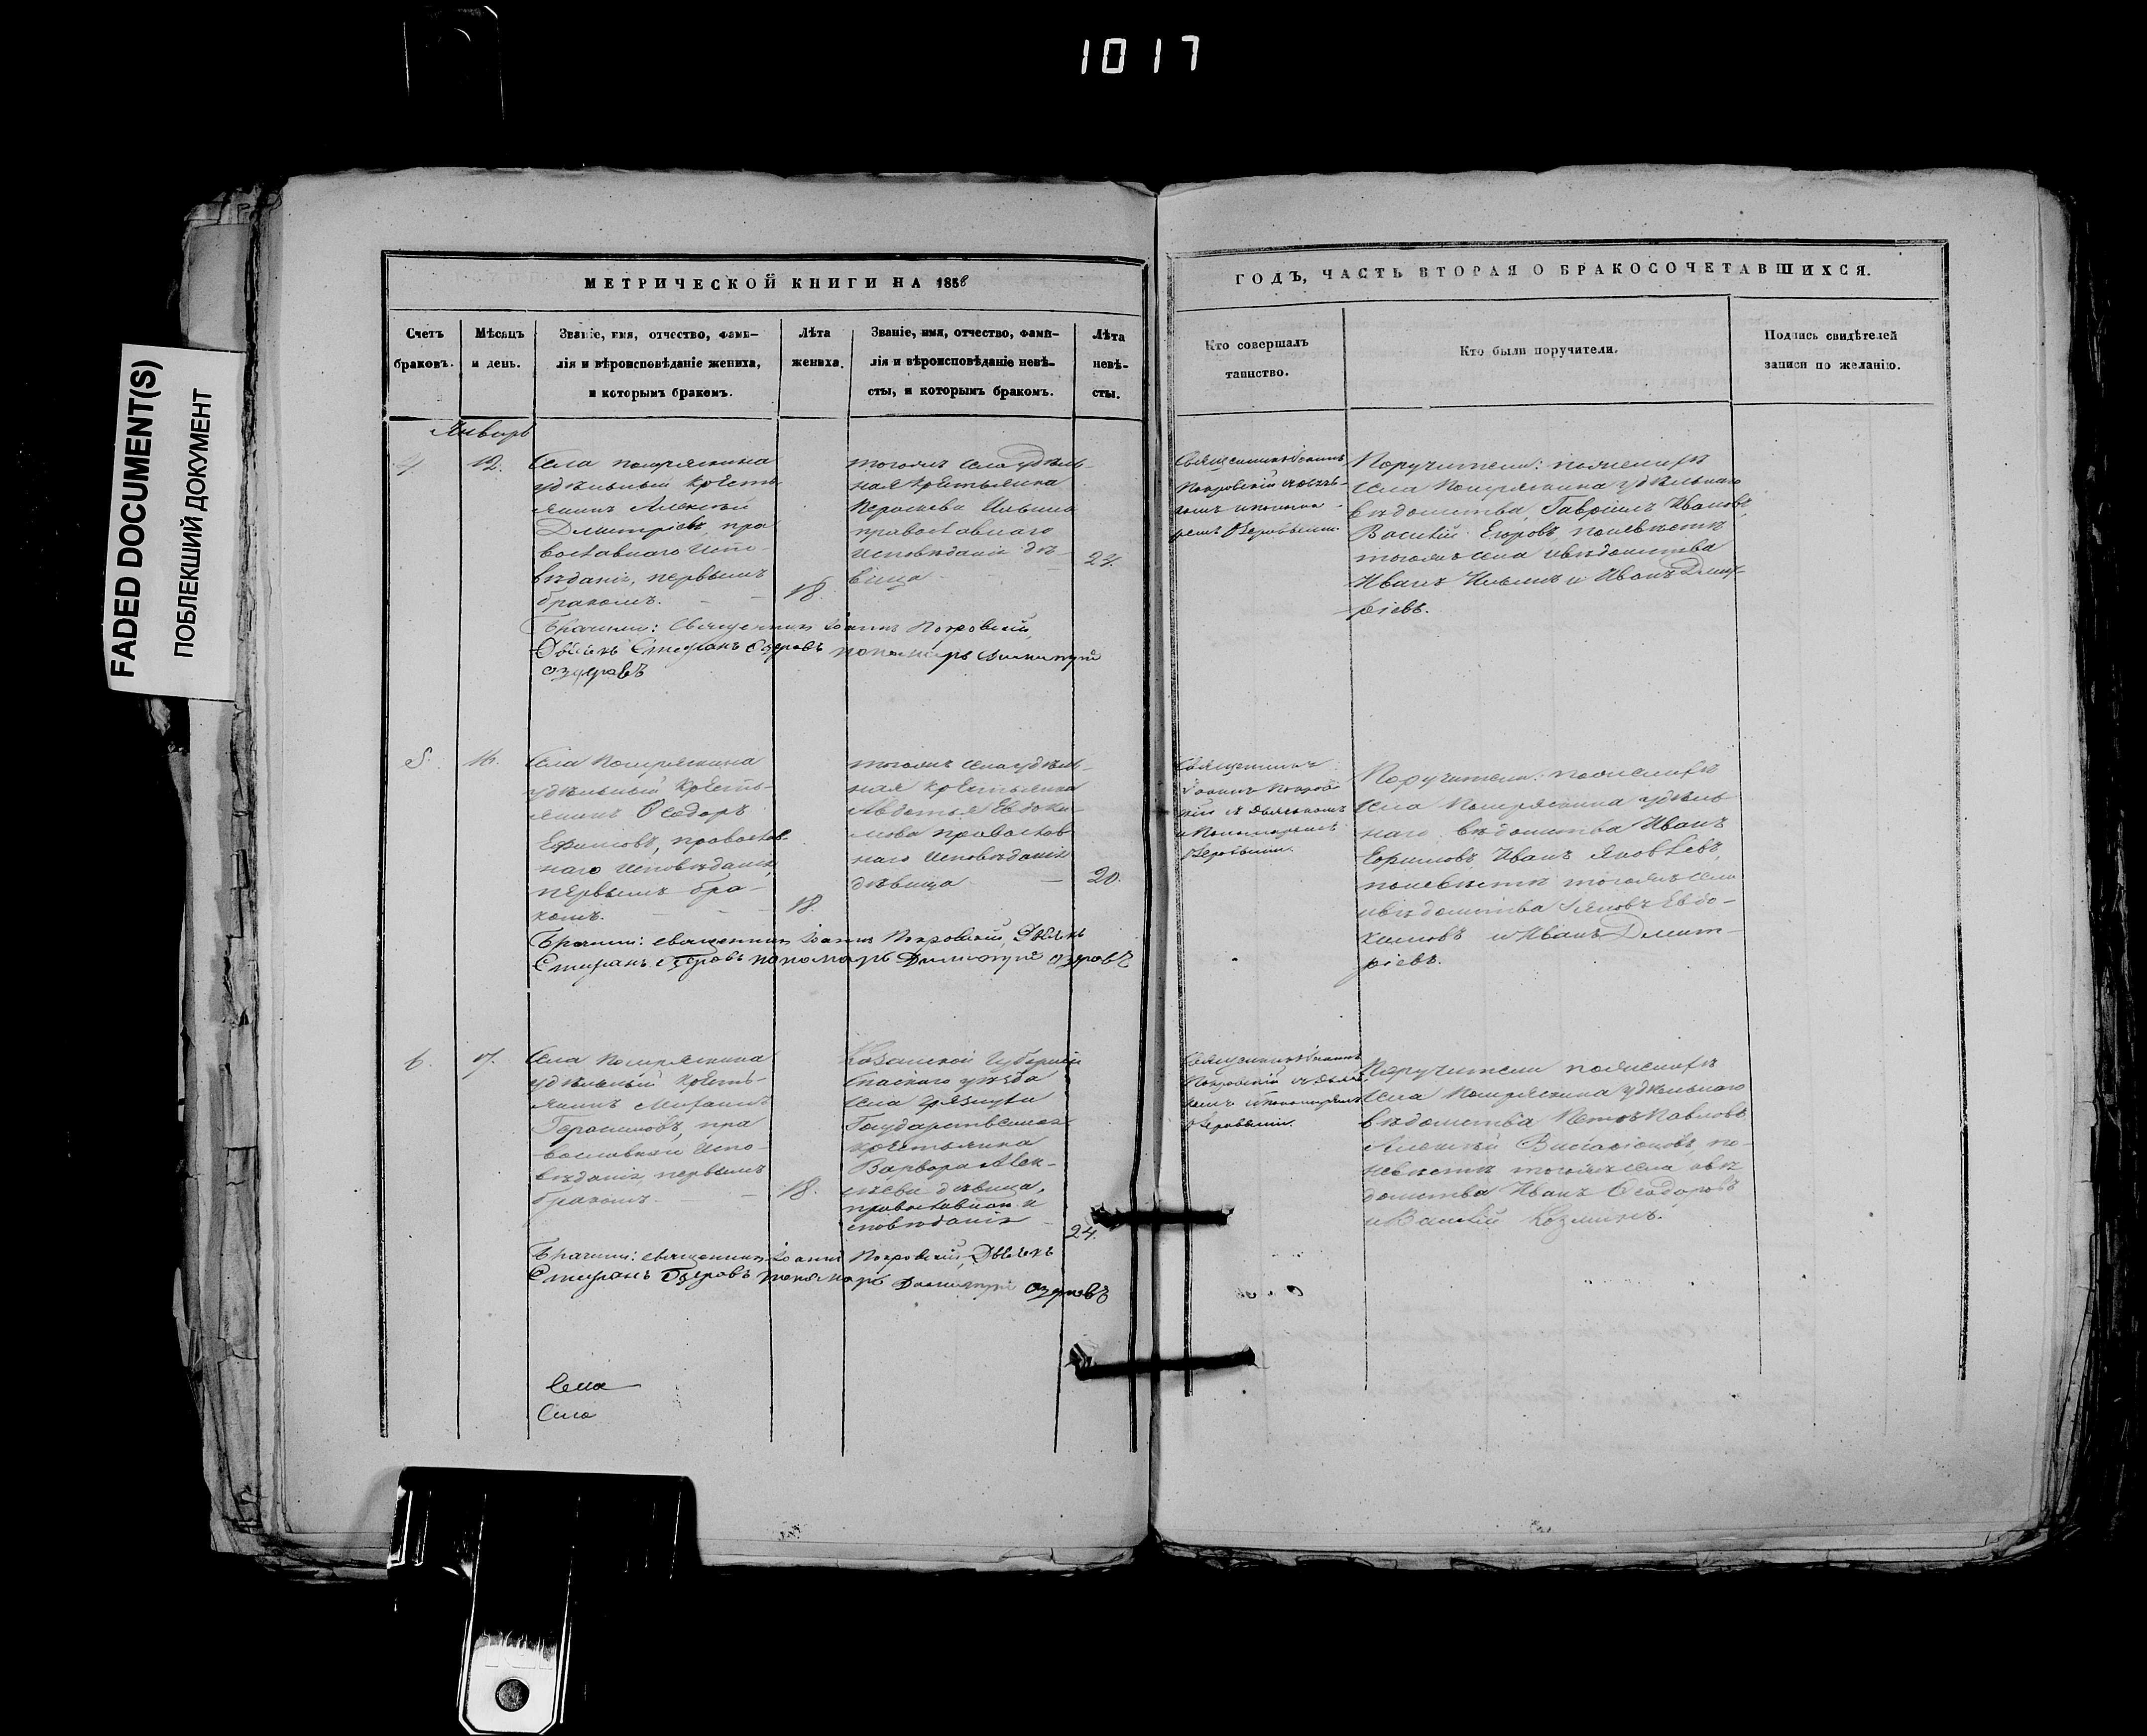 1017
FADED DOCUMENT(S)
ПОБЛЕКШИЙ ДОКУМЕНТ
МЕТРИЧЕСКОЙ КНИГИ НА 1858
Счетъ браковъ.
Мѣсяцъ и день.
Званіе, имя, отчество, фами-
лія и вѣроисповѣданіе жениха,
и которымъ бракомъ.
Лѣта
жениха.
Званіе, имя, отчество, фами-
лія и вѣроисповѣданіе невѣ-
сты, и которымъ бракомъ.
Лѣта
невѣ-
сты.
ГОДЪ, ЧАСТЬ ВТОРАЯ О БРАКОСОЧЕТАВШИХСЯ.
Кто совершалъ
таинство.
Кто были поручители.
Подпись свидѣтелей
записи по желанію.
Январь
4.
12.
Села
удѣльный кресть
янинъ Алексѣй
Димитріевъ, пра
вославнаго испо-
вѣданія, первымъ
бракомъ.
18.
тогожъ села удѣль-
ная крестьянка
Параскева Ильина
православнаго
исповѣданія дѣ-
вица
Священникъ Іоаннъ
Покровскій
Поручители: по женихѣ
села удѣльнаго
вѣдомства, Гавріилъ Ивановъ,
Василій Егоровъ, по невѣстѣ
тогожъ села и вѣдомства
Иванъ Ильинъ и Иванъ Дмит-
ріевъ.
Священникъ Іоаннъ Покровскій,
Стефанъ Озеровъ пономарь Димитрій
Озеровъ
5.
16.
Села
удѣльный кресть-
янинъ Ѳеодоръ
Ефимовъ, православ-
наго исповѣданія,
первымъ бра-
комъ.
18.
тогожъ села удѣль-
ная крестьянка
Авдотья Евдоки-
мова православ
наго исповѣданія
дѣвица
20.
Священникъ
Іоаннъ Покров
скій съ дьякономъ
и пономаремъ
Озеровыми.
Поручители: по женихѣ
села удѣль-
наго вѣдомства Иванъ
Ефимовъ, Иванъ Яковлевъ,
по невѣстѣ тогожъ села
и вѣдомства Евдо-
кимовъ и Иванъ Дмит-
ріевъ.
священникъ Іоаннъ Покровскій,
Стефанъ Озеровъ пономарь Димитрій Озеровъ
6.
17.
Села
удѣльный кресть-
янинъ Михаилъ
Герасимовъ, пра
вославнаго испо-
вѣданія, первымъ
бракомъ
18.
Казанской губерніи
Спаскаго уѣзда
села
Государственная
крестьянка
Варвара Алек-
сѣева дѣвица,
православнаго и
сповѣданія
24.
Священникъ Іоаннъ
Покровскій
Озеровыми.
Поручители по женихѣ
села удѣльнаго
вѣдомства Петръ Павловъ
Алексѣй по-
невѣстѣ тогожъ села и вѣ
домства Иванъ Ѳеодоровъ
и Василій Козминъ.
священникъ Іоаннъ Покровскій,
Стефанъ Озеровъ пономарь Димитрій Озеровъ
Села
Села